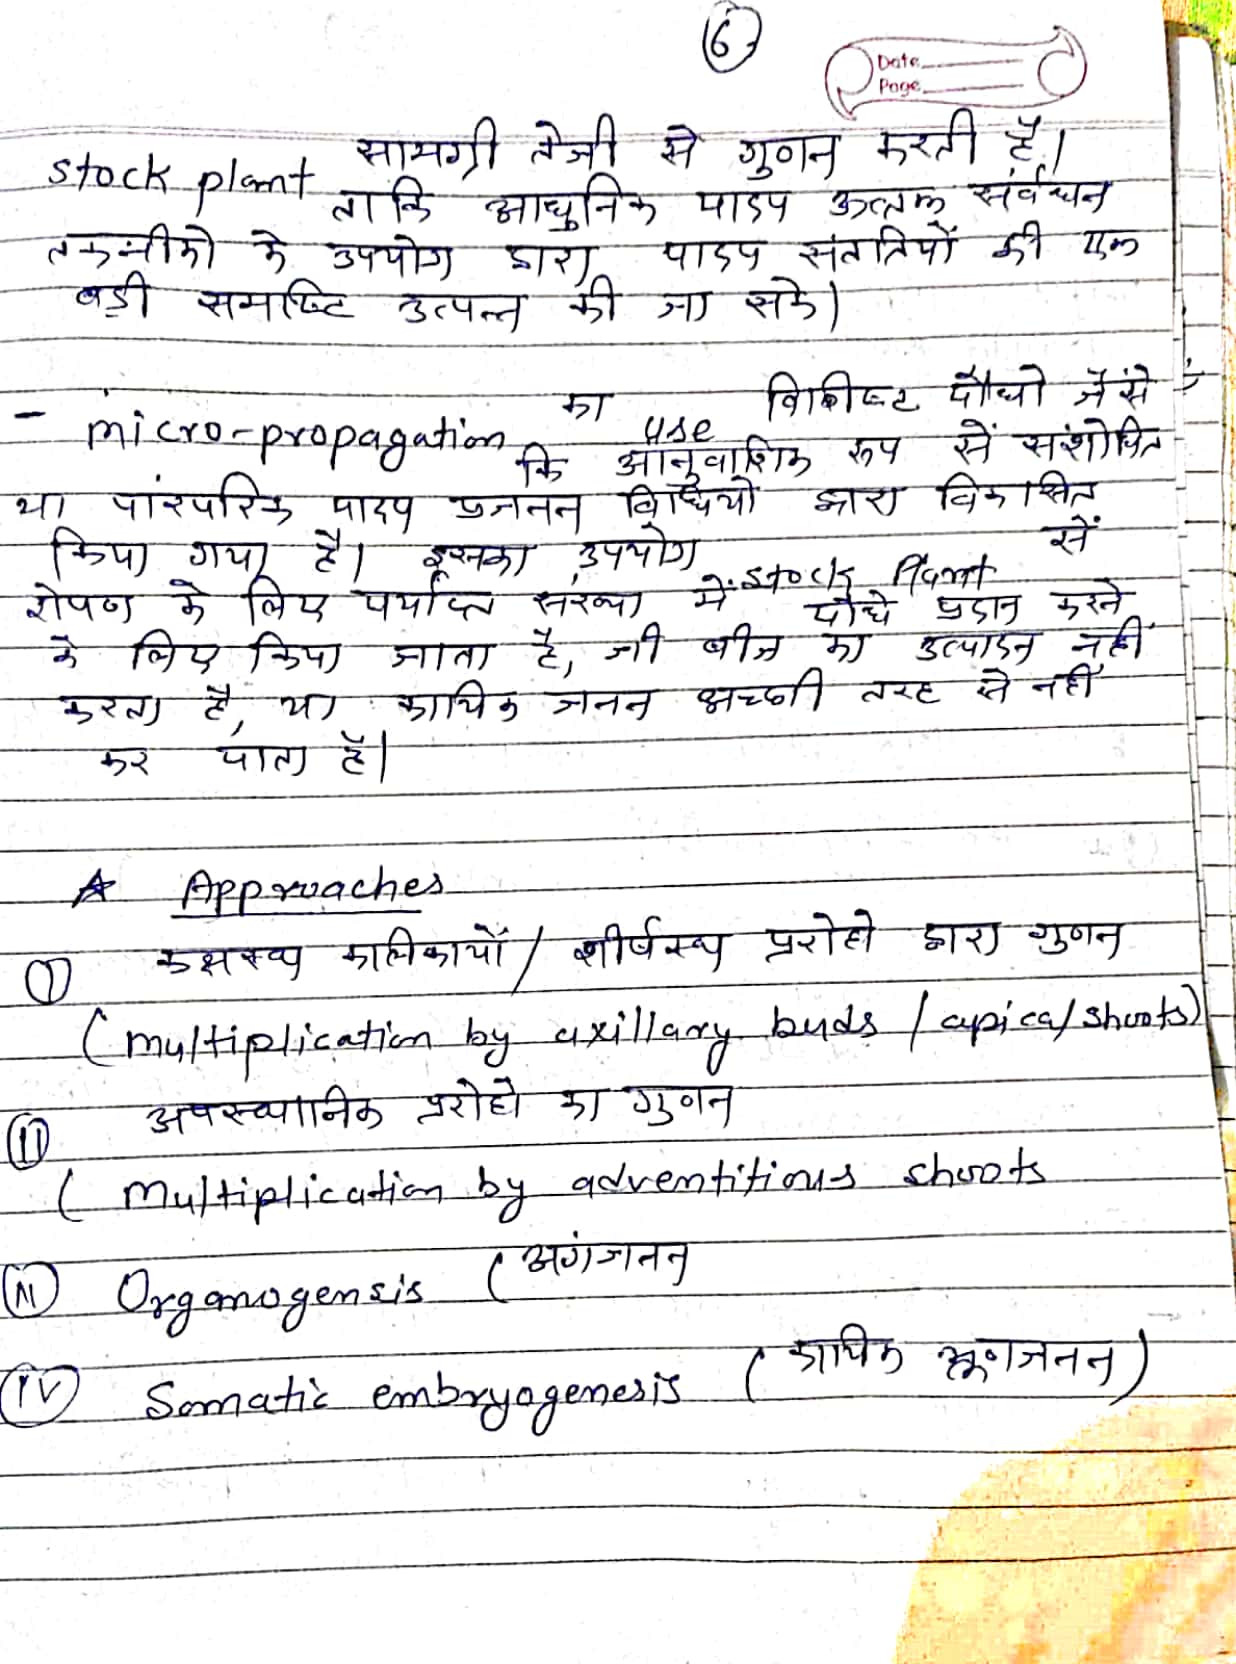 6
Date
Page
stock plant सामग्री तेजी से गुणन करती है।
ताकि आधुनिक पादप ऊत्तक संर्वधन
तकनीको के उपयोग द्वारा पादप संततियों की एक
बडी समष्टि उत्पन्न की जा सके।
- micro-propagation का use विशिष्ट पौधो जैसे
कि आनुवाशिक रूप से संशोधित
या पांरपरिक पादप प्रजनन विधियो द्वारा विकासित
किया गया है। इसका उपयोग stock Plant से
रोपण के लिए पर्याप्त संख्या में पौधे प्रदान करने
के लिए किया जाता है, जो बीज का उत्पादन नहीं
करता है, या कायिक जनन अच्छी तरह से नहीं
कर पाता है।
☆ Approaches
I कक्षस्थ कालिकायों / शीर्षस्थ प्ररोहो द्वारा गुणन
(multiplication by axillary buds / apical shoots)
II अपस्थानिक प्ररोहो का गुणन
( Multiplication by adventitious shoots
III Organogensis ( अगंजनन
IV Somatic embryogenesis ( कायिक भ्रूणजनन )